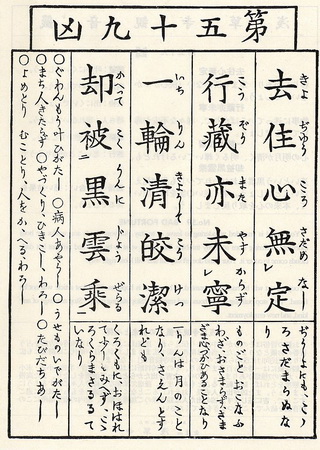 第五十九凶
去住心無定
きよ ぢゆう こゝろ さだめ なし
ぢうしよにも、こゝ
ろさだまらぬな
り
行藏亦未寧
こう ぞう また やすからず
ものごとおこなふ
わざおさまらず、きま
心づかひあることなり
一輪清皎潔
いち りん きようして こう けつ
一りんは月のこと
なり、さえんとす
れども
却被黒雲乗
かへつて こくうんに じようぜらる
くろくもに、おほはれ
みへず、こゝ
ろくらまさるゝて
いなり
○ぐわんもう叶ひがたし ○病人あやうし ○うせものいでがたし
○まち人きたらず ○やづくり、ひきこし、わろし ○たびだちあし
○よめとり むことり、人をかゝへる、わろし